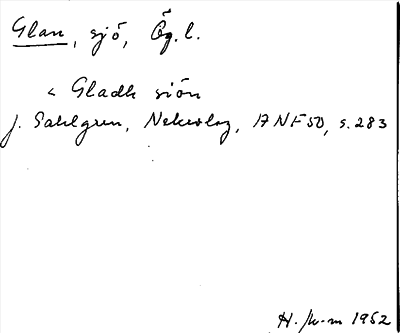 Glan, sjö, Ög. l.
< Gladh siön
J. Sahlgren, Nekrolog, i NF 50, s. 283
H. 1952